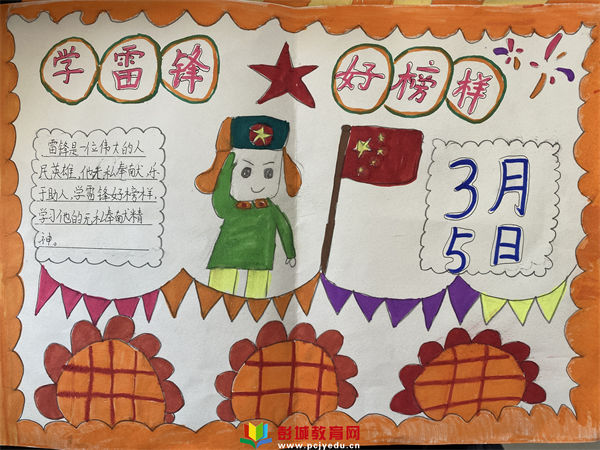 学雷锋
好榜样
雷锋是一位伟大的人
民英雄,他无私奉献,乐
于助人,学雷锋好榜样,
学习他的无私奉献精
神。
3月
5日
彭城教育网
www.pcjyedu.cn